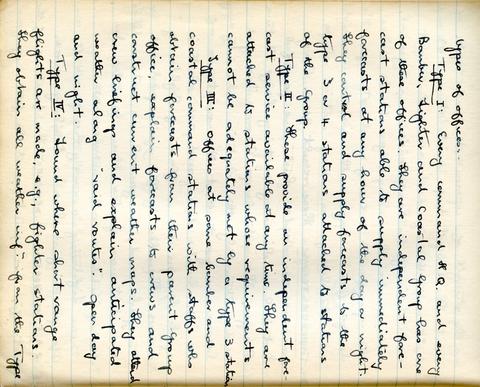 types of offices.
Type I: Every command H.Q. and every
Bomber, Fighter and Coastal Group has one
of these offices. They are independent fore-
cast stations able to supply immediately
forecasts at any hour of the day or night
They control and supply forecasts to the
type 3 or 4 stations attached to stations
of the Group.
Type II: These provide an independent fore-
cast service available at any time They are
attached to stations whose requirements
cannot be adequately met by a type 3 station
Type III: Offices at some bomber and
coastal command stations with staffs who
obtain forecasts from their parent Group
office, explain forecasts to crews and
construct current weather maps. They attend
crew briefings and explain anticipated
weather along "raid routes". Open day
and night.
Type IV: Found where short range
flights are made. e.g., fighter stations.
They obtain all weather infn from the Type